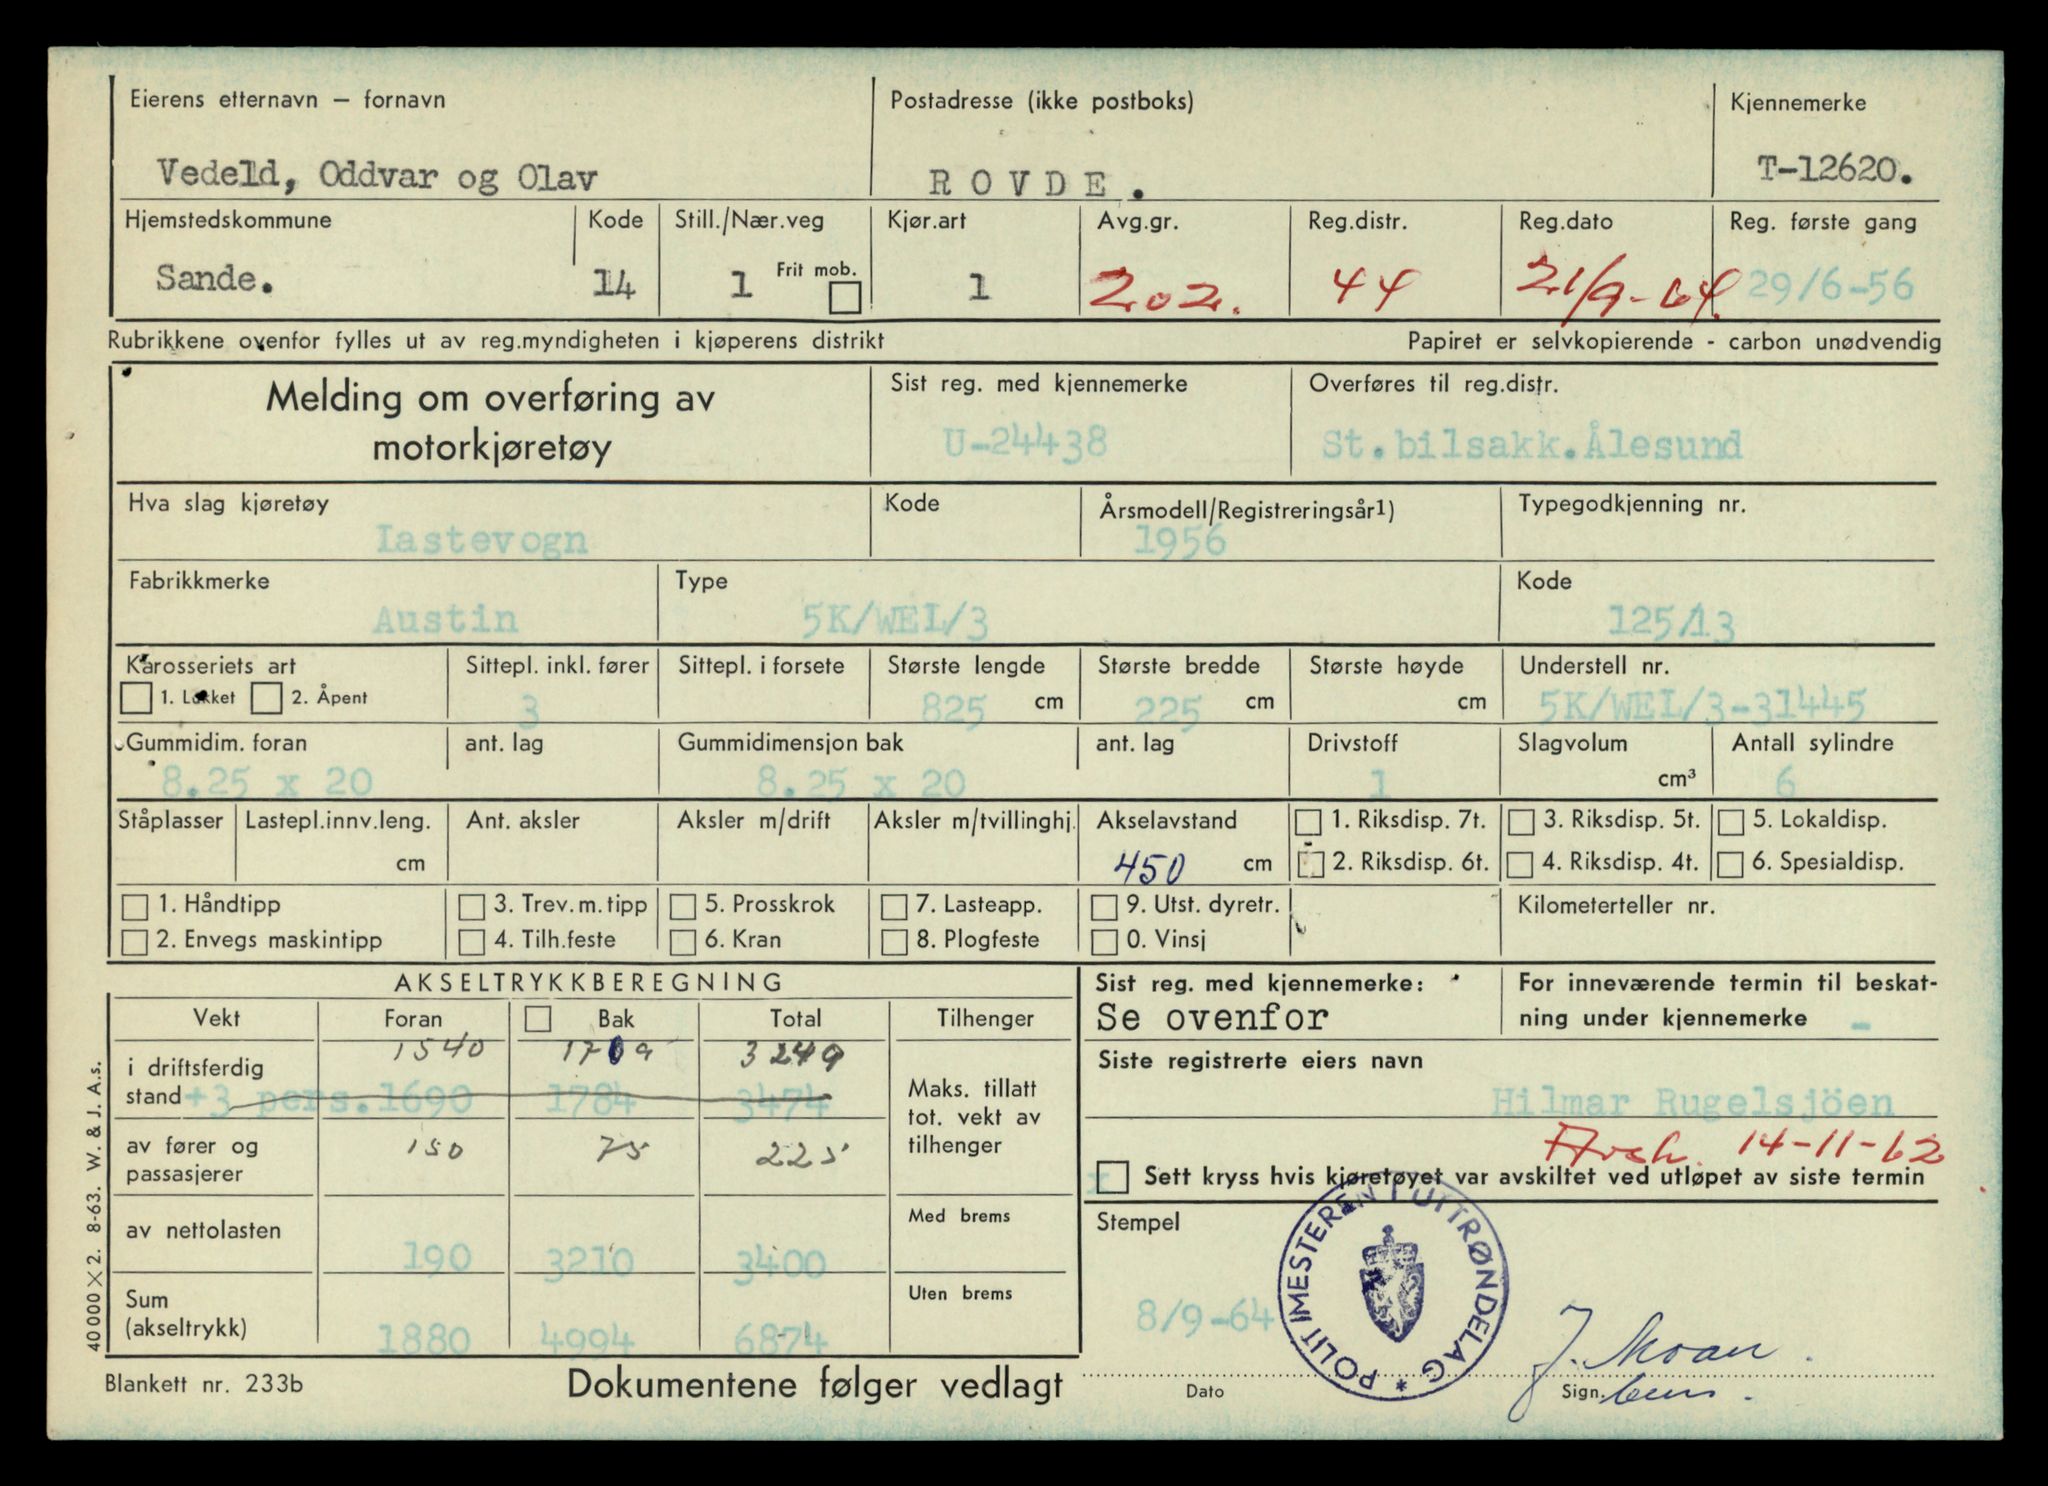 Eierens etternavn – fornavn
Postadresse (ikke postboks)
Kjennemerke
Vedeld, Oddvar og Olav
ROVDE.
T-12620.
Hjemstedskommune
Kode
Still./Nær.veg
Kjør.art
Avg.gr.
Reg.distr.
Reg.dato
Reg. første gang
Sande.
14
1
Frit mob.
1
202.
44
21/9-64.
29/6-56
Rubrikkene ovenfor fylles ut av reg.myndigheten i kjøperens distrikt
Papiret er selvkopierende - carbon unødvendig
Melding om overføring av
motorkjøretøy
Sist reg. med kjennemerke
Overføres til reg.distr.
U-24438
St.bilsakk.Ålesund
Hva slag kjøretøy
Kode
Årsmodell/Registreringsår1)
Typegodkjenning nr.
Iastevogn
1956
Fabrikkmerke
Type
Kode
Austin
5K/WEL/3
125/13
Karosseriets art
Sittepl. inkl. fører
Sittepl. i forsete
Største lengde
Største bredde
Største høyde
Understell nr.
1. Lukket
2. Åpent
3
825 cm
225 cm
cm
5K/WEL/3-31445
Gummidim. foran
ant. lag
Gummidimensjon bak
ant. lag
Drivstoff
Slagvolum
Antall sylindre
8.25 x 20
8.25 x 20
1
cm³
6
Ståplasser
Lastepl.innv.leng.
Ant. aksler
Aksler m/drift
Aksler m/tvillinghj.
Akselavstand
1. Riksdisp. 7t.
3. Riksdisp. 5t.
5. Lokaldisp.
cm
450 cm
2. Riksdisp. 6t.
4. Riksdisp. 4t.
6. Spesialdisp.
1. Håndtipp
3. Trev. m. tipp
5. Prosskrok
7. Lasteapp.
9. Utst. dyretr.
Kilometerteller nr.
2. Envegs maskintipp
4. Tilh.feste
6. Kran
8. Plogfeste
0. Vinsj
AKSELTRYKKBEREGNING
Sist reg. med kjennemerke:
For inneværende termin til beskat-
ning under kjennemerke -
Se ovenfor
Vekt
Foran
Bak
Total
Tilhenger
1540
1709
3249
i driftsferdig
stand
+3 pers. 1690
1784
3474
Maks. tillatt
tot. vekt av
tilhenger
Siste registrerte eiers navn
Hilmar Rugelsjöen
av fører og
passasjerer
150
75
225
Avsk. 14-11-62
x
Sett kryss hvis kjøretøyet var avskiltet ved utløpet av siste termin
av nettolasten
190
3210
3400
Med brems
Stempel
Sum
(akseltrykk)
1880
4994
6874
Uten brems
8/9-64
POLITIMESTEREN I UTTRØNDELAG *
J. Moan
Dato
Sign.
40000 X 2. 8-63. W. & J. A.s.
Blankett nr. 233b
Dokumentene følger vedlagt